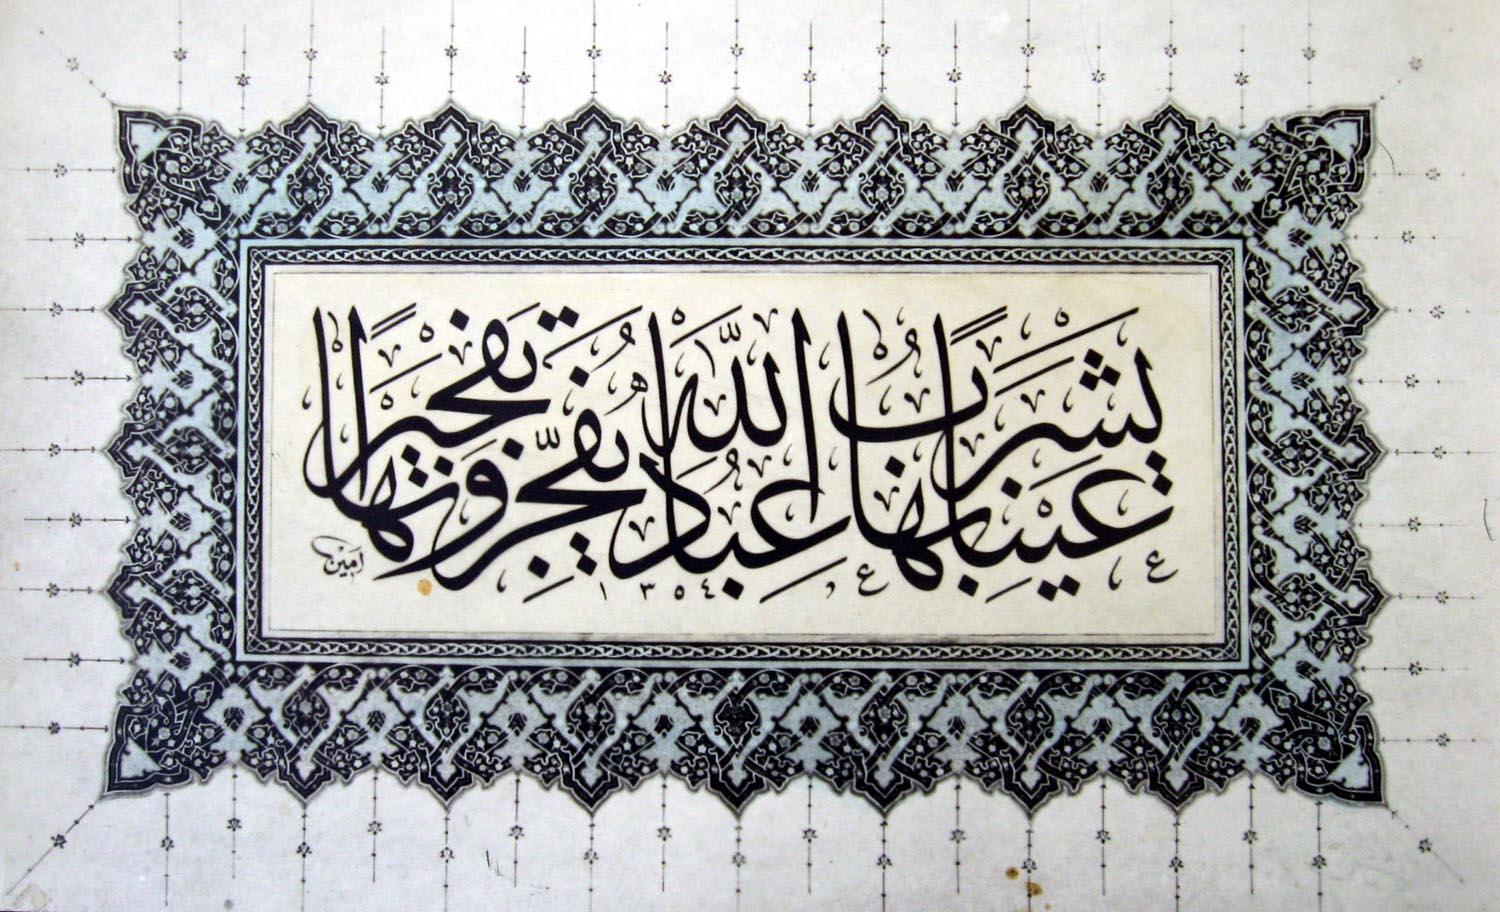 عَيْنًا يَشْرَبُ بِهَا عِبَادُ اللّٰهِ يُفَجِّرُونَهَا تَفْجِيرًا
امين ١٣٥٤